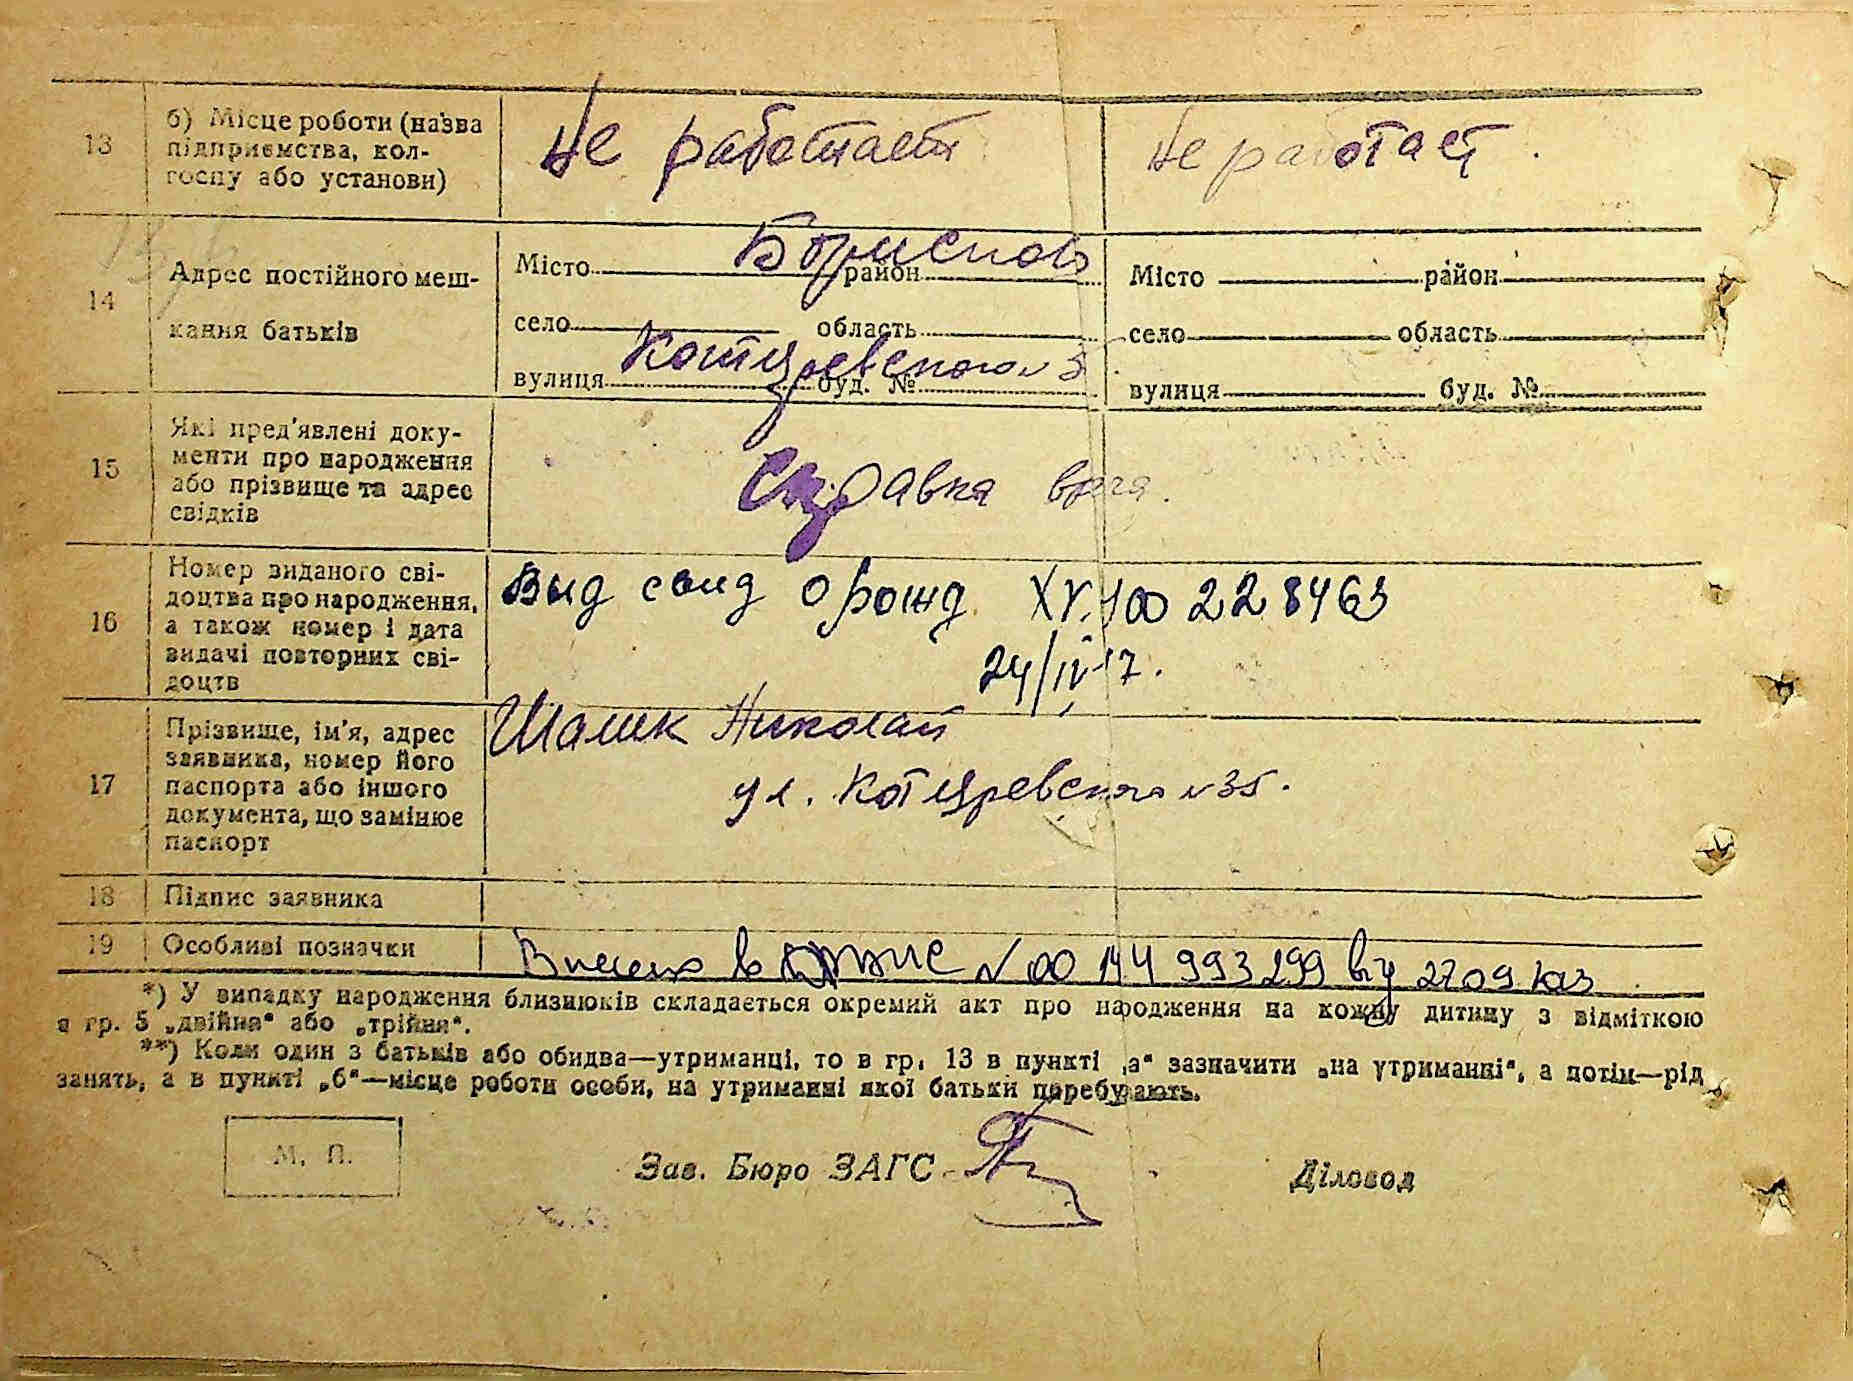 13 б) Місце роботи (назва підприємства, кол-
госпу або установи) Не работает Не работает.
14 Адрес постійного меш-
кання батьків
Місто район Місто район
село область село область
Котляревского №3
вулиця буд. № вулиця буд. №
15 Які пред'явлені доку-
менти про народження
або прізвище та адрес
свідків
Справка врача.
16 Номер виданого сві-
доцтва про народження,
а також номер і дата
видачі повторних сві-
доцтв
Выд свид о рожд. XV.
228463
24/IV
17 Прізвище, ім'я, адрес
заявника, номер його
паспорта або іншого
документа, що замінює
паспорт
Николай
ул. Котляревского №35.
18 Підпис заявника
19 Особливі позначки
№ 00 144 993 299 від
*) У випадку народження близнюків складається окремий акт про народження на кожну дитину з відміткою
в гр. 5 „двійня“ або „трійня“.
**) Коли один з батьків або обидва—утриманці, то в гр. 13 в пункті „а“ зазначити „на утриманні“, а потім—рід
занять, а в пункті „б“—місце роботи особи, на утриманні якої батьки перебувають.
М. П. Зав. Бюро ЗАГС Діловод